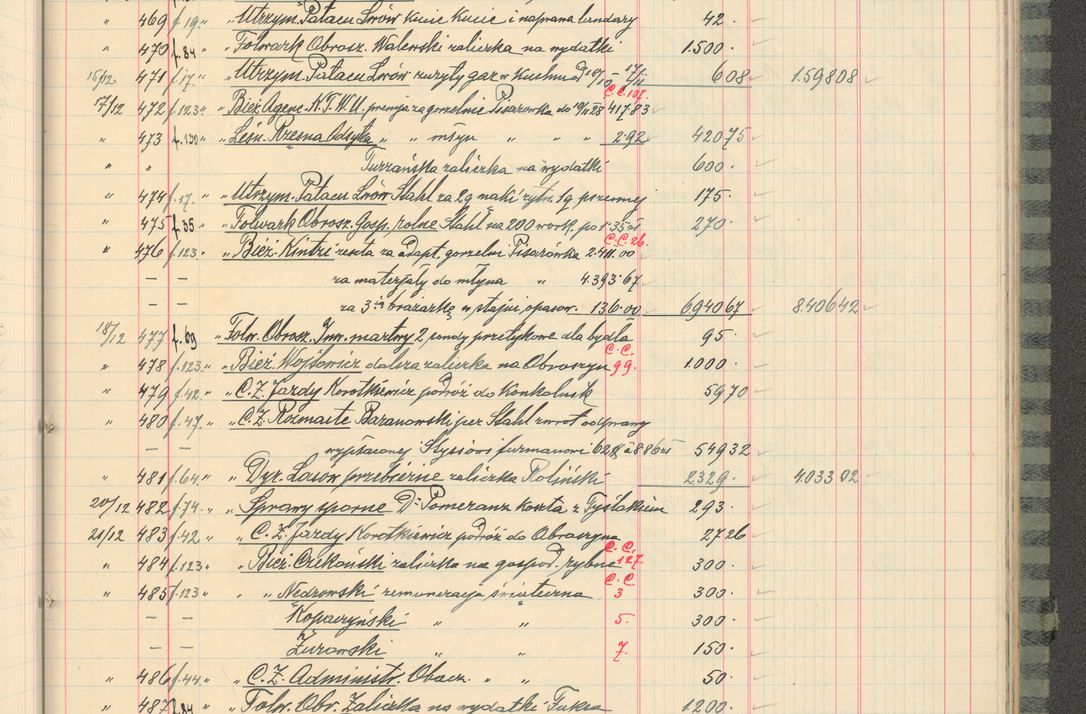 " 469 f.19. " " Utrzym. Pałacu Lwów Kucie i naprawa 42.
" 470 f.84 " Folwark Obrosz. Walewski zaliczka na wydatki 1.500.
15/12 471 f.17. " " Utrzym. Pałacu Lwów zużyty gaz w Kuchni 608 1.598 08
C.C. 107.
17/12 472 f.123 " " Bież. Agenc. premja za gorzelnię Pisarówka do 28 417 83
" 473 f.130 " " Leśn. Rzęsna " " młyn " " " 2.92 420 75
" " Turzańska zaliczka na wydatki 600.
" 474 f.17. " " Utrzym. Pałacu Lwów Stahl za 2 q mąki żytn. 1 q pszennej 175.
" 475 f.35 " Folwark Obrosz. Gosp. rolne Stahl na 200 work. po 1.35 zł 270
C.C. 26.
" 476 f.123. " " Bież. Kintzi reszta za adapt. gorzelni Pisarówka 2.411.00
— — za materjały do młyna " 4.393.67
— — w stajni opasow. 136.00 6.940 67 8.406 42
18/12 477 f.69 " Folw. Obrosz. Inw. martwy 2 sondy przełykowe dla bydła 95.
C.C.
" 478 f.123. " " Bież. Wojtowicz dalsza zaliczka na Obroszyn 99. 1.000.
" 479 f.42. " " C.Z. Jazdy Korotkiewicz podróż do Konkolnik 59 70
" 480 f.47. " " C.Z. Rozmaite Baranowski per Stahl zwrot odprawy
— — wypłaconej furmanowi 62 à 8.86 zł 549 32
" 481 f.64. " " Dyr. Lasów przebiercze zaliczka Roliński 2.329. 4.033 02
20/12 482 f.74. " " Sprawy sporne Dr Pomeranz koszta z 293.
21/12 483 f.42 " " C.Z. Jazdy Korotkiewicz podróż do Obroszyna 27 26
C.C.
" 484 f.123 " " Bież. zaliczka na gospod. rybne 127. 300.
C.C.
" 485 f.123 " " " Nedzowski remuneracja świąteczna 3 300.
— — Kopaczyński " " 5. 300.
— — Żurowski " " 7. 150.
" 486 f.44. " " C.Z. Administr. " " 50.
" 487 f.84 " Folw. Obr. Zaliczka na wydatki Fuksa 1.200.